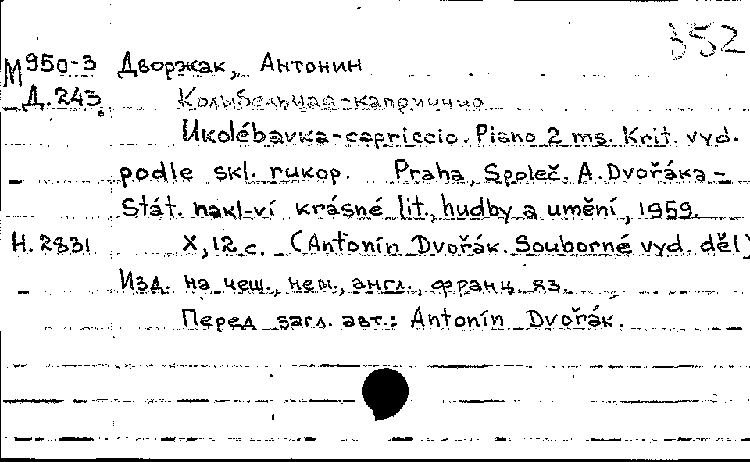 352
М950-3 Дворжак, Антонин
Д.243. Колыбельная-каприччио
Ukolébavka-capriccio. Piano 2 ms. Krit. vyd.
podle skl. rukop. Praha, Společ. A. Dvořáka –
Stát. nakl-ví krásné lit., hudby a umění, 1959.
Н.2831 X, 12 с. (Antonín Dvořák. Souborné vyd. děl)
Изд. на чеш., нем., англ., франц. яз.
Перед загл. авт.: Antonín Dvořák.